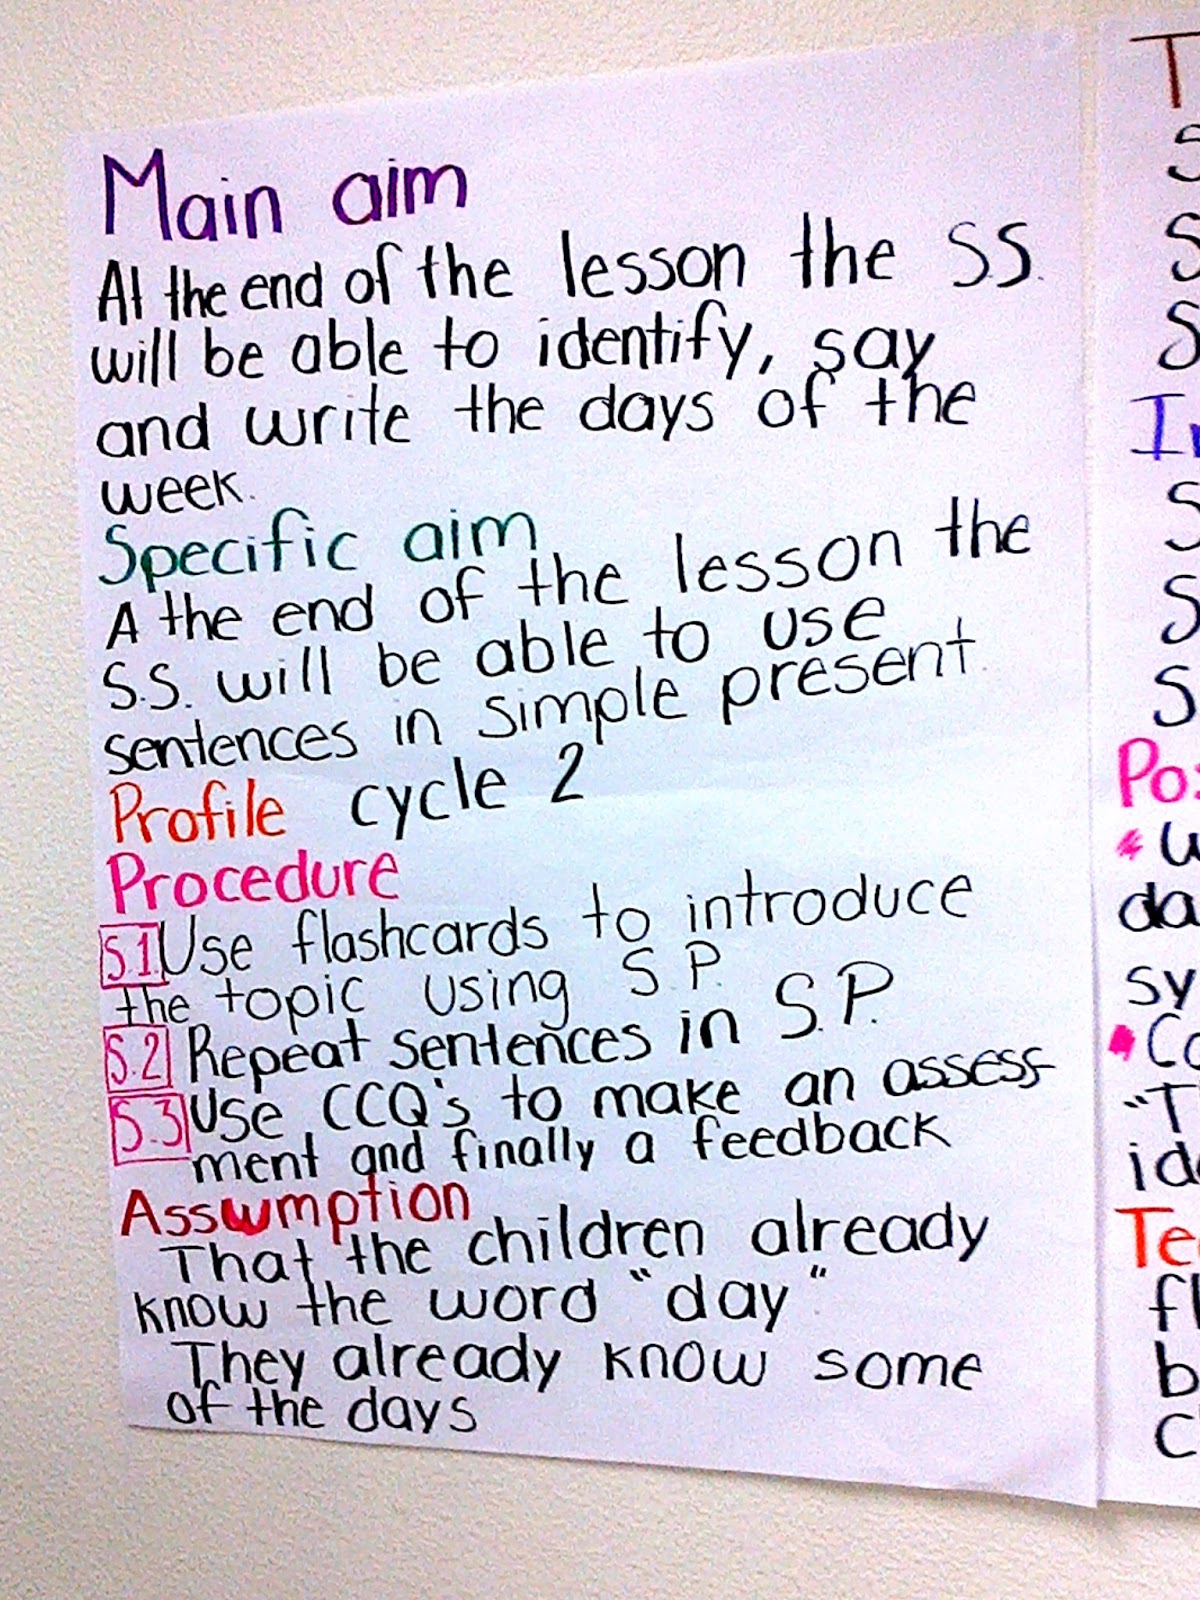 Main aim
At the end of the lesson the S.S.
will be able to identify, say
and write the days of the
week.
Specific aim
A the end of the lesson the
S.S. will be able to use
sentences in simple present.
Profile cycle 2
Procedure
S.1 Use flashcards to introduce
the topic using S.P.
S.2 Repeat sentences in S.P.
S.3 Use CCQ's to make an assess-
ment and finally a feedback
Asswmption
That the children already
know the word "day"
They already know some
of the days